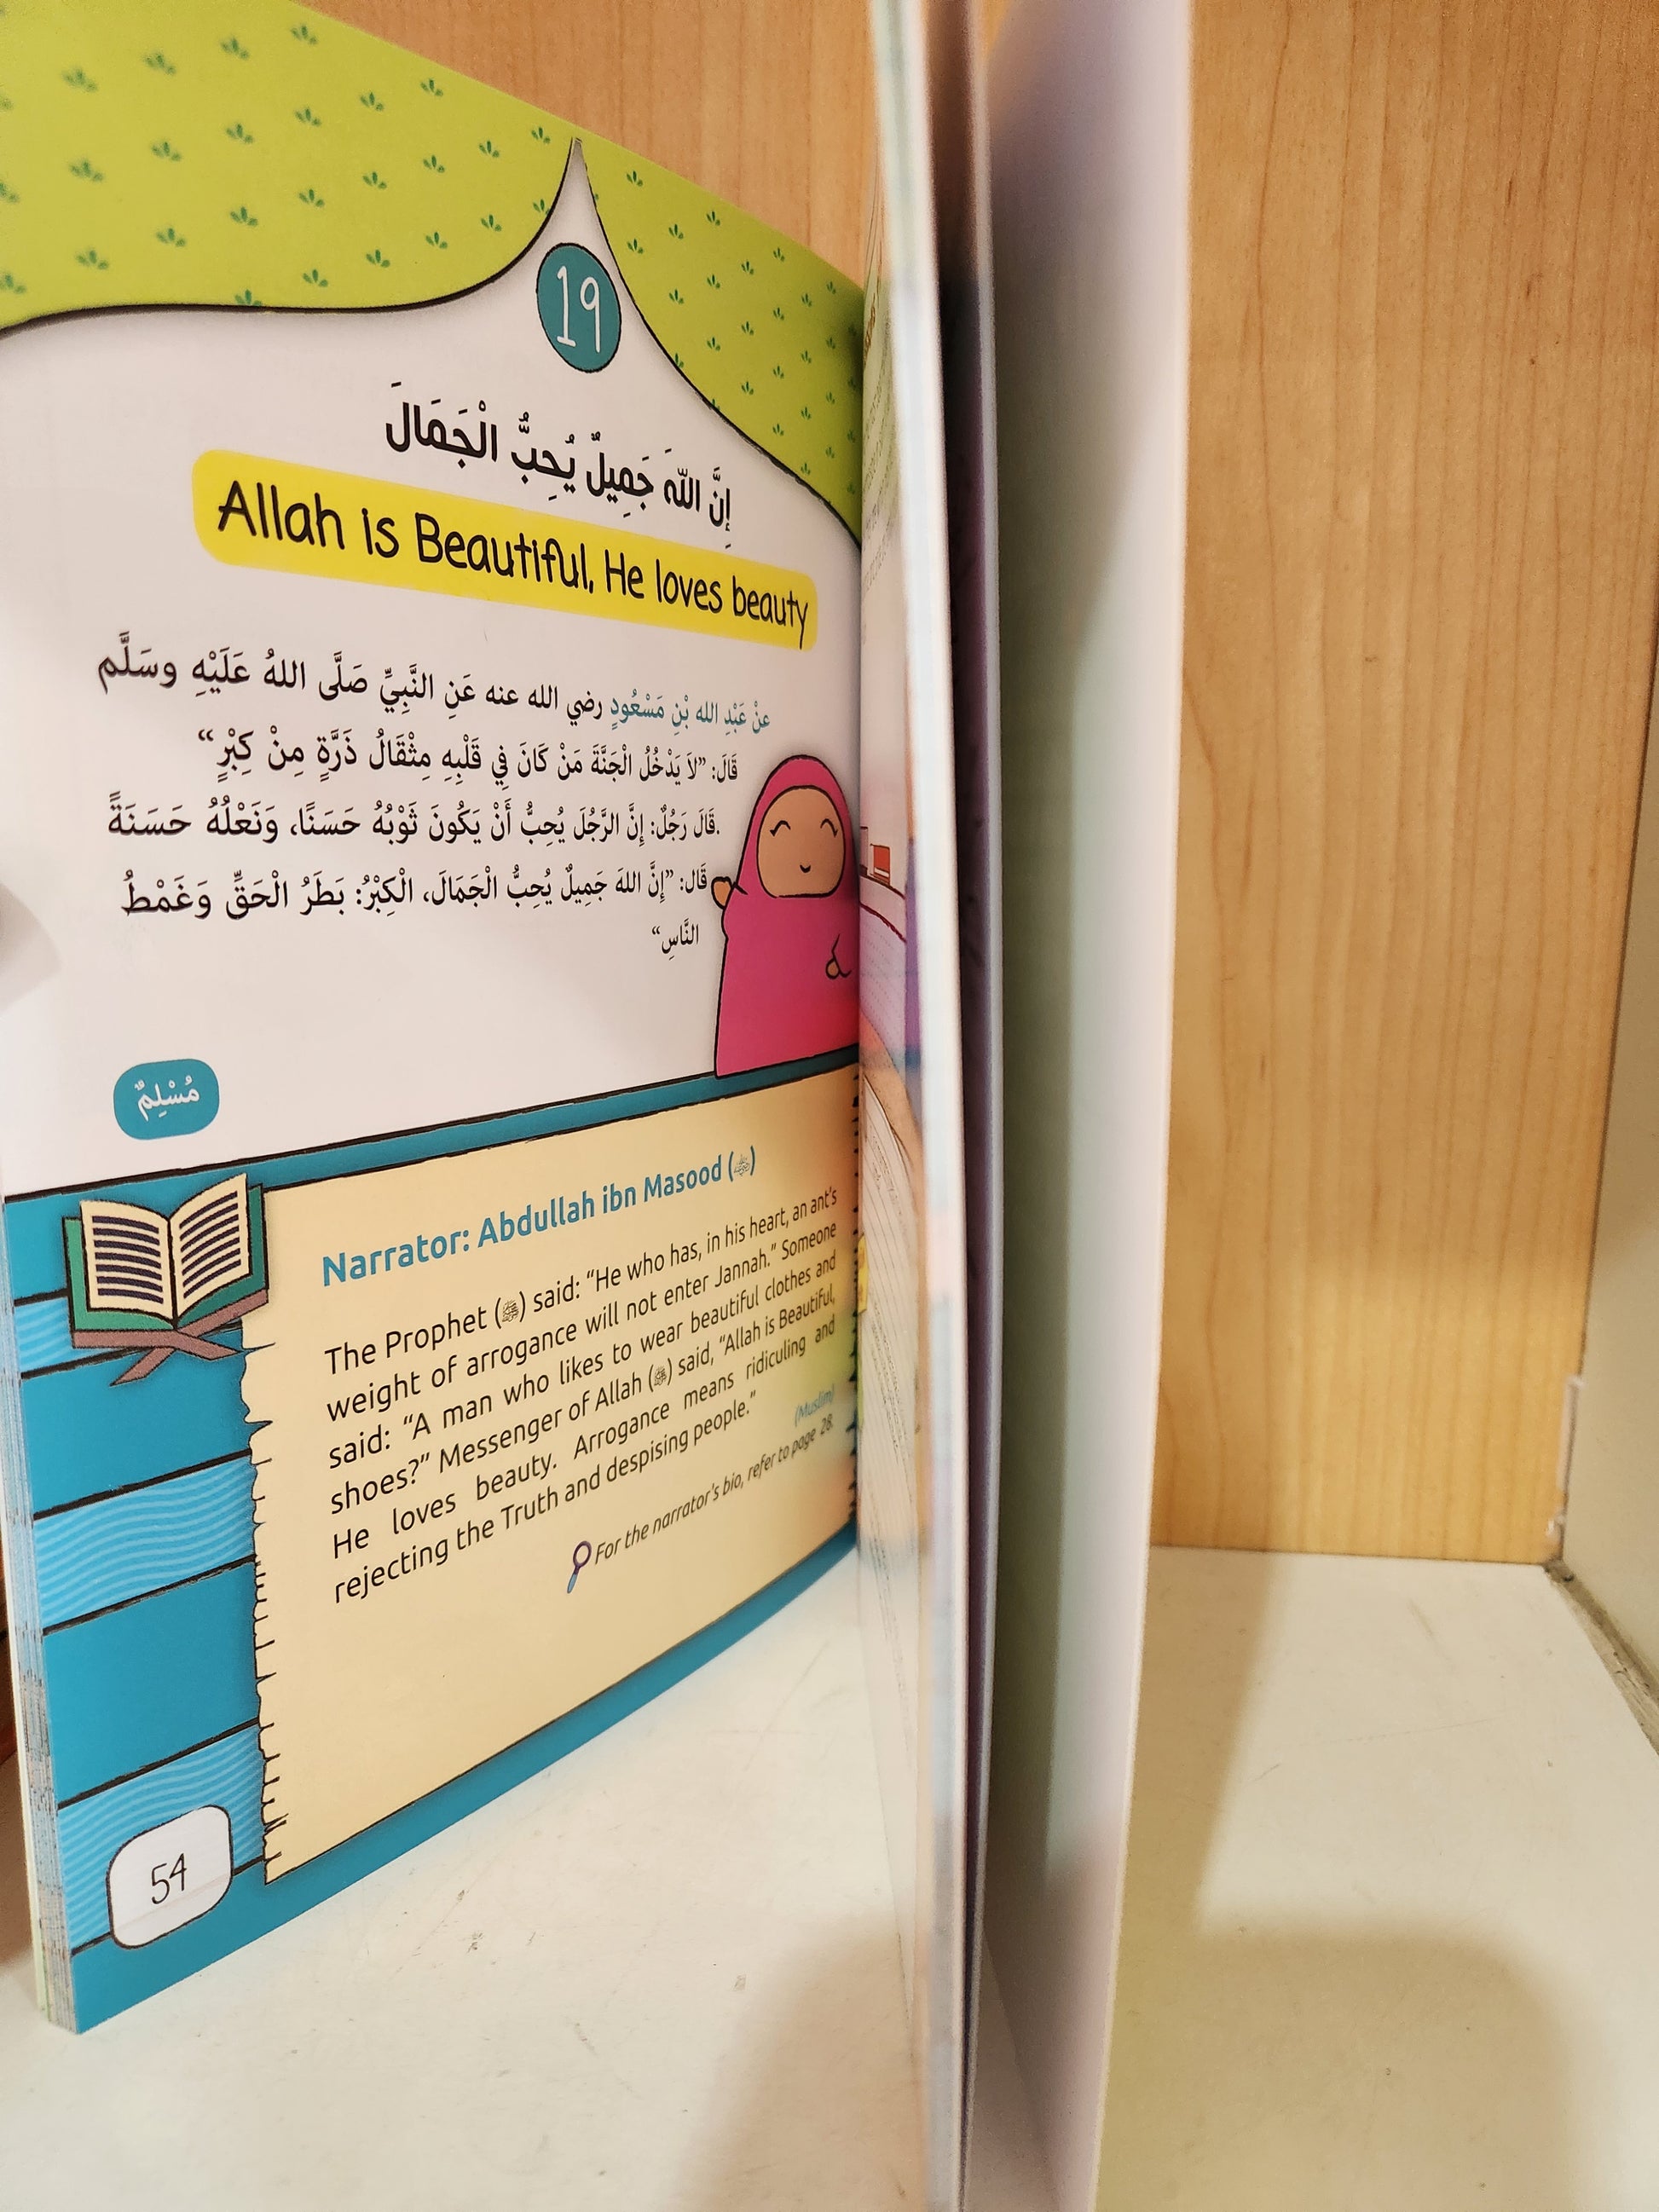 19
إِنَّ اللّٰهَ جَمِيلٌ يُحِبُّ الْجَمَالَ
Allah is Beautiful, He loves beauty
عنْ عَبْدِ الله بْنِ مَسْعُودٍ رضي الله عنه عَنِ النَّبِيِّ صَلَّى اللهُ عَلَيْهِ وسَلَّم
قَالَ: ”لاَ يَدْخُلُ الْجَنَّةَ مَنْ كَانَ فِي قَلْبِهِ مِثْقَالُ ذَرَّةٍ مِنْ كِبْرٍ“
.قَالَ رَجُلٌ: إِنَّ الرَّجُلَ يُحِبُّ أَنْ يَكُونَ ثَوْبُهُ حَسَنًا، وَنَعْلُهُ حَسَنَةً
قَال: ”إِنَّ اللهَ جَمِيلٌ يُحِبُّ الْجَمَالَ، الْكِبْرُ: بَطَرُ الْحَقِّ وَغَمْطُ
النَّاسِ“
مُسْلِمٌ
Narrator: Abdullah ibn Masood (رضي الله عنه)
The Prophet (ﷺ) said: “He who has, in his heart, an ant's
weight of arrogance will not enter Jannah.” Someone
said: “A man who likes to wear beautiful clothes and
shoes?” Messenger of Allah (ﷺ) said, “Allah is Beautiful,
He loves beauty. Arrogance means ridiculing and
rejecting the Truth and despising people.”
(Muslim)
For the narrator's bio, refer to page 28.
54